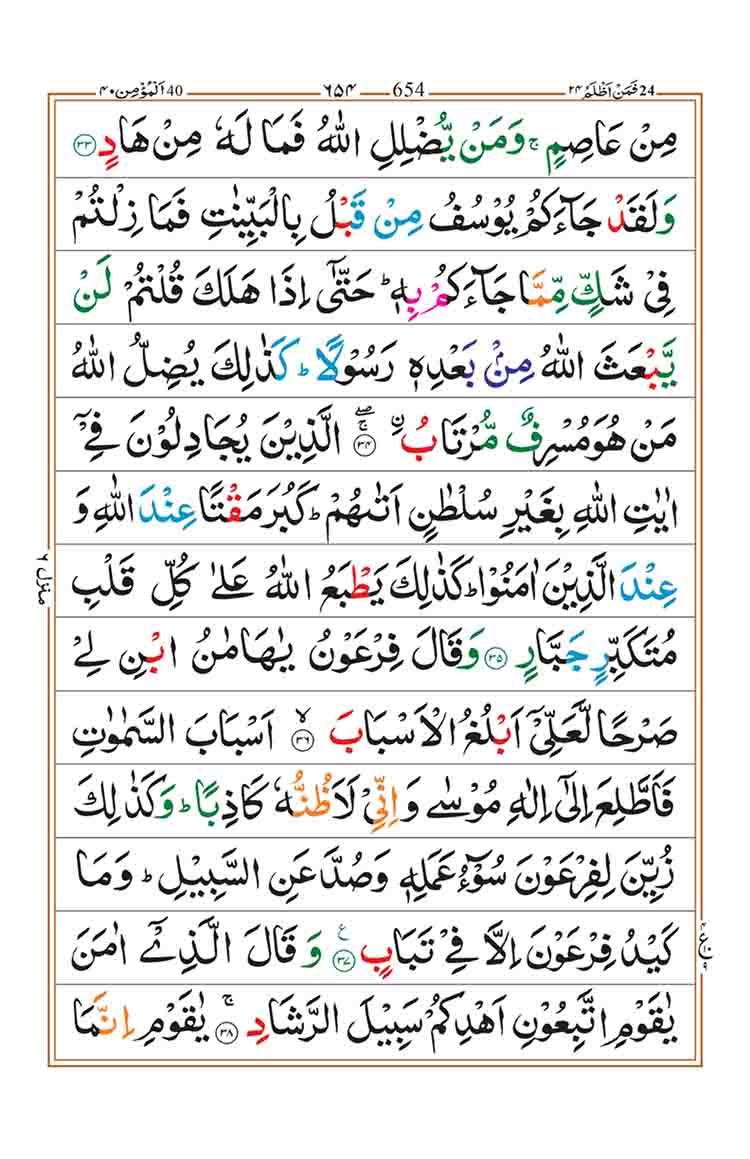 24 فَمَنْ اَظْلَمُ ۲۴ 654 ۶۵۴ 40 اَلْمُؤْمِن ۴۰
مِنْ عَاصِمٍ ۚ وَمَنْ يُّضْلِلِ اللّٰهُ فَمَا لَهٗ مِنْ هَادٍ ۝۳۳
وَلَقَدْ جَآءَكُمْ يُوْسُفُ مِنْ قَبْلُ بِالْبَيِّنٰتِ فَمَا زِلْتُمْ
فِيْ شَكٍّ مِّمَّا جَآءَكُمْ بِهٖ ؕ حَتّٰٓى اِذَا هَلَكَ قُلْتُمْ لَنْ
يَّبْعَثَ اللّٰهُ مِنْ بَعْدِهٖ رَسُوْلًا ؕ كَذٰلِكَ يُضِلُّ اللّٰهُ
مَنْ هُوَ مُسْرِفٌ مُّرْتَابُ ۨ ۝۳۴ ۖۚ الَّذِيْنَ يُجَادِلُوْنَ فِيْٓ
اٰيٰتِ اللّٰهِ بِغَيْرِ سُلْطٰنٍ اَتٰىهُمْ ؕ كَبُرَ مَقْتًا عِنْدَ اللّٰهِ وَ
عِنْدَ الَّذِيْنَ اٰمَنُوْا ؕ كَذٰلِكَ يَطْبَعُ اللّٰهُ عَلٰى كُلِّ قَلْبِ
مُتَكَبِّرٍ جَبَّارٍ ۝۳۵ وَقَالَ فِرْعَوْنُ يٰهَامٰنُ ابْنِ لِيْ
صَرْحًا لَّعَلِّيْٓ اَبْلُغُ الْاَسْبَابَ ۝۳۶ ۙ اَسْبَابَ السَّمٰوٰتِ
فَاَطَّلِعَ اِلٰٓى اِلٰهِ مُوْسٰى وَاِنِّيْ لَاَظُنُّهٗ كَاذِبًا ؕ وَكَذٰلِكَ
زُيِّنَ لِفِرْعَوْنَ سُوْٓءُ عَمَلِهٖ وَصُدَّ عَنِ السَّبِيْلِ ؕ وَمَا
كَيْدُ فِرْعَوْنَ اِلَّا فِيْ تَبَابٍ ۝۳۷ ع وَقَالَ الَّذِيْٓ اٰمَنَ
يٰقَوْمِ اتَّبِعُوْنِ اَهْدِكُمْ سَبِيْلَ الرَّشَادِ ۝۳۸ ۚ يٰقَوْمِ اِنَّمَا
منزل ۶